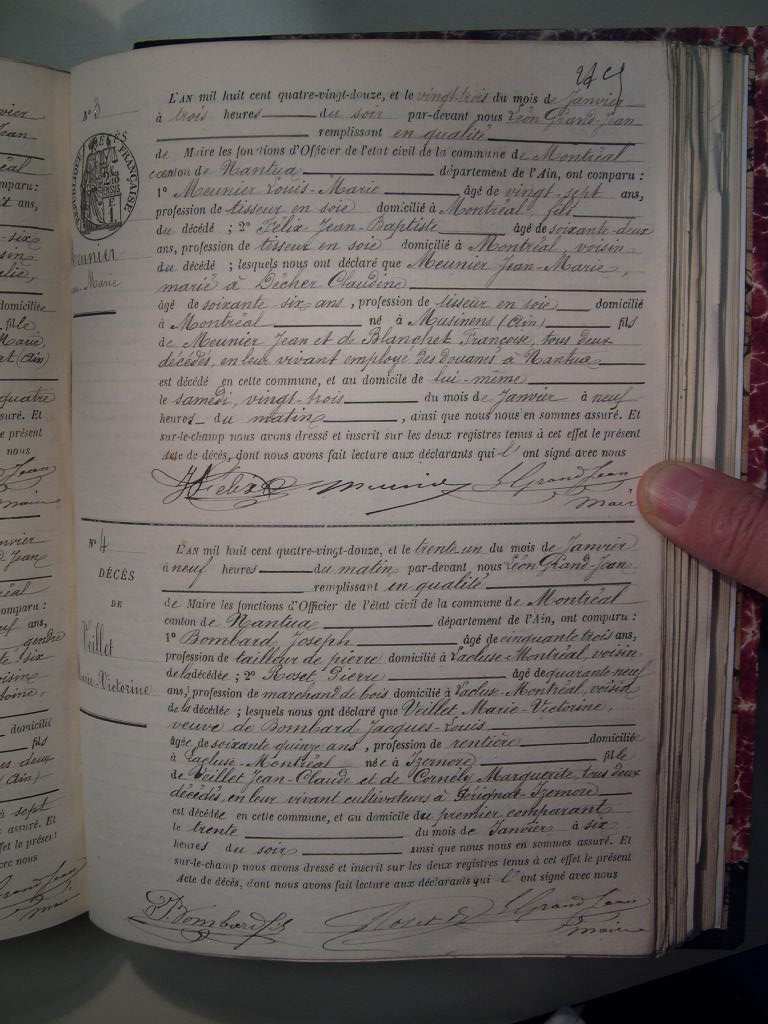 N° 3
RÉPUBLIQUE FRANÇAISE
DÉCÈS
Meunier
Jean-Marie
L'AN mil huit cent quatre-vingt-douze, et le vingt-trois du mois de Janvier
à trois heures du soir par-devant nous Léon Grand-Jean
remplissant en qualité
de Maire les fonctions d'Officier de l'état civil de la commune de Montréal
canton de Nantua département de l'Ain, ont comparu :
1° Meunier Louis-Marie âgé de vingt-sept ans,
profession de tisseur en soie domicilié à Montréal, fils
du décédé ; 2° Félix Jean-Baptiste âgé de soixante-deux
ans, profession de tisseur en soie domicilié à Montréal, voisin
du décédé ; lesquels nous ont déclaré que Meunier Jean-Marie,
marié à Pécher Claudine
âgé de soixante six ans, profession de tisseur en soie domicilié
à Montréal né à Musinens (Ain) fils
de Meunier Jean et de Blanchet Françoise, tous deux
décédés, en leur vivant employé des douanes à Nantua
est décédé en cette commune, et au domicile de lui-même
le samedi, vingt-trois du mois de Janvier à neuf
heures du matin, ainsi que nous nous en sommes assuré. Et
sur-le-champ nous avons dressé et inscrit sur les deux registres tenus à cet effet le présent
Acte de décès, dont nous avons fait lecture aux déclarants qui l'ont signé avec nous
Félix Meunier L Grand Jean
maire
N° 4
DÉCÈS
DE
Veillet
Marie-Victorine
L'AN mil huit cent quatre-vingt-douze, et le trente-un du mois de Janvier
à neuf heures du matin par-devant nous Léon Grand-Jean
remplissant en qualité
de Maire les fonctions d'Officier de l'état civil de la commune de Montréal
canton de Nantua département de l'Ain, ont comparu :
1° Bombard Joseph âgé de cinquante trois ans,
profession de tailleur de pierre domicilié à Lacluse-Montréal, voisin
de la décédée ; 2° Roset, Pierre âgé de quarante-neuf
ans, profession de marchand de bois domicilié à Lacluse-Montréal, voisin
de la décédée ; lesquels nous ont déclaré que Veillet Marie-Victorine,
veuve de Bombard Jacques-Louis
âgée de soixante quinze ans, profession de rentière domiciliée
à Lacluse-Montréal née à Izernore fille
de Veillet Jean-Claude et de Cornély Marguerite, tous deux
décédés, en leur vivant cultivateurs à Izernore
est décédée en cette commune, et au domicile du premier comparant
le trente du mois de Janvier à six
heures du soir ainsi que nous nous en sommes assuré. Et
sur-le-champ nous avons dressé et inscrit sur les deux registres tenus à cet effet le présent
Acte de décès, dont nous avons fait lecture aux déclarants qui l'ont signé avec nous
Bombard Roset L Grand Jean
maire